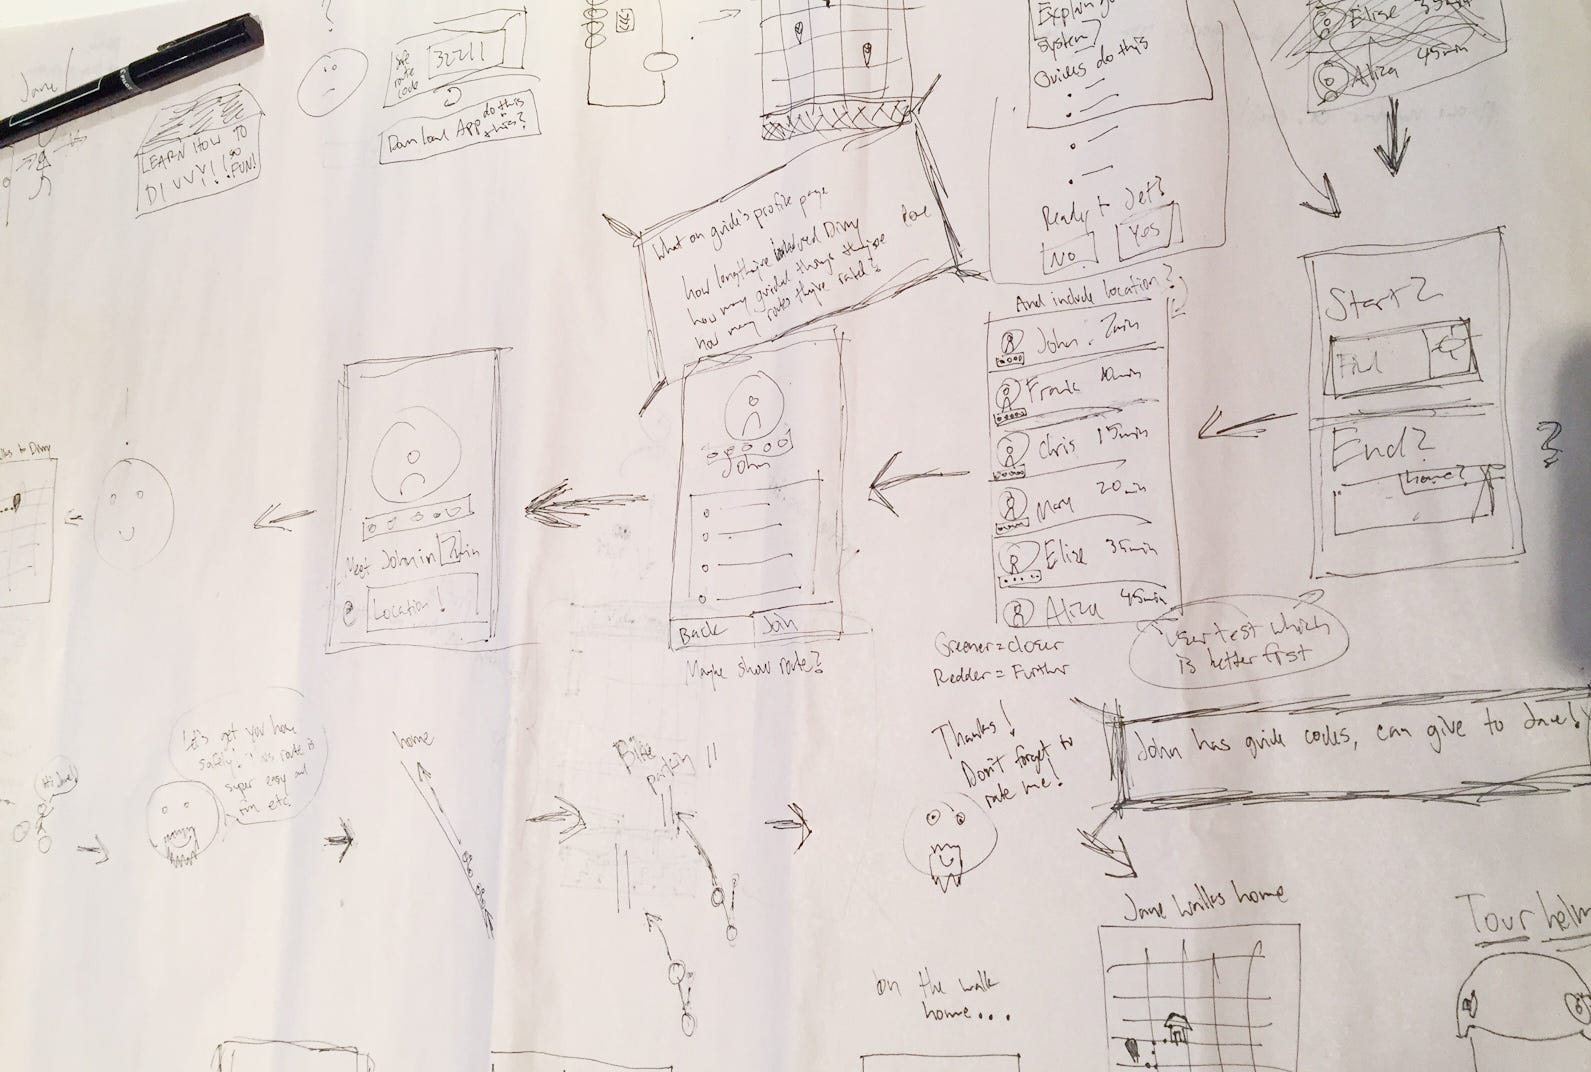 Jane!
LEARN HOW TO
DIVVY!! GO
FUN!
?
Safe
route
code
32211
Download App
do this
+ this?
Explain
system?
Guides do this
Ready to Jet?
No
Yes
Elise 35min
Aliza 45min
What on guide's profile page
how long they've Divvy
how many guided things they've done
how many routes they've rated?
Start?
Find
End?
home?
?
And include location?
John 2min
Frank 10min
Chris 15min
Mary 20min
Elise 35min
Aliza 45min
Greener = closer
Redder = Further
user test which
is better first
John
Back
Join
Maybe show route?
Meet John in 2min
Location!
to Divvy
Hi Jane!
Let's get you home
safely! This route is
super easy and
fun, etc.
home
Bike
parkin
Thanks!
Don't forget to
rate me!
John has guide codes, can give to Jane!
Jane walks home
on the walk
home...
Tour helm